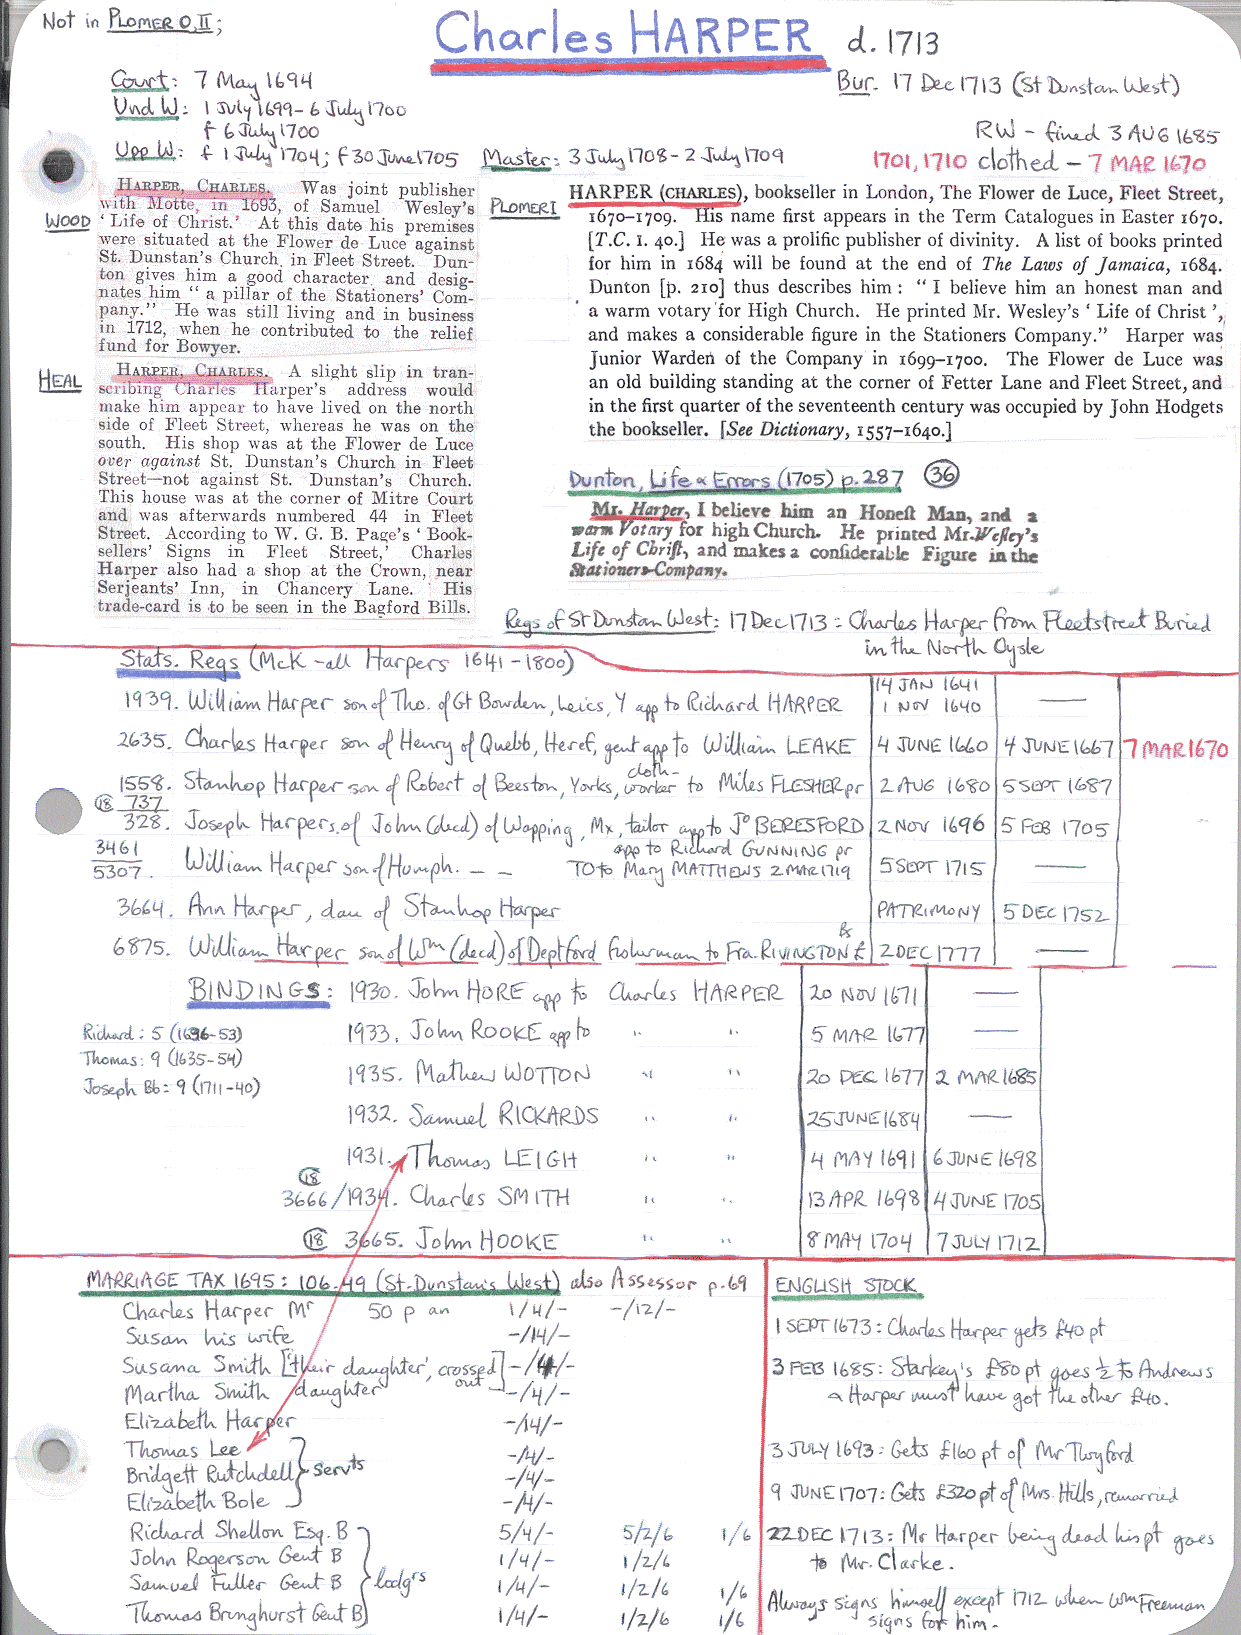 Not in PLOMER O, II;
Charles HARPER d. 1713
Court: 7 May 1694
Bur. 17 Dec 1713 (St Dunstan West)
Und W: 1 July 1699 - 6 July 1700
f 6 July 1700
RW - fined 3 AUG 1685
Upp W: f 1 July 1704; f 30 June 1705
Master: 3 July 1708 - 2 July 1709
1701, 1710 clothed - 7 MAR 1670
WOOD
HARPER, CHARLES. Was joint publisher
with Motte, in 1693, of Samuel Wesley's
' Life of Christ.' At this date his premises
were situated at the Flower de Luce against
St. Dunstan's Church, in Fleet Street. Dun-
ton gives him a good character and desig-
nates him " a pillar of the Stationers' Com-
pany." He was still living and in business
in 1712, when he contributed to the relief
fund for Bowyer.
HEAL
HARPER, CHARLES. A slight slip in tran-
scribing Charles Harper's address would
make him appear to have lived on the north
side of Fleet Street, whereas he was on the
south. His shop was at the Flower de Luce
over against St. Dunstan's Church in Fleet
Street—not against St. Dunstan's Church.
This house was at the corner of Mitre Court
and was afterwards numbered 44 in Fleet
Street. According to W. G. B. Page's ' Book-
sellers' Signs in Fleet Street,' Charles
Harper also had a shop at the Crown, near
Serjeants' Inn, in Chancery Lane. His
trade-card is to be seen in the Bagford Bills.
PLOMER I
HARPER (CHARLES), bookseller in London, The Flower de Luce, Fleet Street,
1670–1709. His name first appears in the Term Catalogues in Easter 1670.
[T.C. I. 40.] He was a prolific publisher of divinity. A list of books printed
for him in 1684 will be found at the end of The Laws of Jamaica, 1684.
Dunton [p. 210] thus describes him : " I believe him an honest man and
a warm votary for High Church. He printed Mr. Wesley's ' Life of Christ ',
and makes a considerable figure in the Stationers Company." Harper was
Junior Warden of the Company in 1699–1700. The Flower de Luce was
an old building standing at the corner of Fetter Lane and Fleet Street, and
in the first quarter of the seventeenth century was occupied by John Hodgets
the bookseller. [See Dictionary, 1557–1640.]
Dunton, Life & Errors (1705) p.287 36
Mr. Harper, I believe him an Honest Man, and a
warm Votary for high Church. He printed Mr. Wesley's
Life of Christ, and makes a considerable Figure in the
Stationers-Company.
Regs of St Dunstan West: 17 Dec 1713: Charles Harper from Fleetstreet Buried
in the North Oysle
Stats. Regs (McK - all Harpers 1641 - 1800)
14 JAN 1641
1939. William Harper son of Tho. of Gt Bowden, Leics, Y app to Richard HARPER 1 NOV 1640 —
2635. Charles Harper son of Henry of Quebb, Heref, gent app to William LEAKE 4 JUNE 1660 4 JUNE 1667 7 MAR 1670
1558. Stanhop Harper son of Robert of Beeston, Yorks, cloth-worker to Miles FLESHER pr 2 AUG 1680 5 SEPT 1687
18 737
328. Joseph Harper s. of John (decd) of Wapping, Mx, tailor app to Jo BERESFORD 2 NOV 1696 5 FEB 1705
3461
5307. William Harper son of Humph. - - app to Richard GUNNING pr 5 SEPT 1715 —
TO to Mary MATTHEWS 2 MAR 1719
3664. Ann Harper, dau of Stanhop Harper PATRIMONY 5 DEC 1752
6875. William Harper son of Wm (decd) of Deptford fisherman to Fra. RIVINGTON 2 DEC 1777 —
BINDINGS: 1930. John HORE app to Charles HARPER 20 NOV 1671 —
Richard: 5 (1636-53)
1933. John ROOKE app to " " 5 MAR 1677 —
Thomas: 9 (1635-54)
1935. Mathew WOTTON " " 20 DEC 1677 2 MAR 1685
Joseph Bb: 9 (1711-40)
1932. Samuel RICKARDS " " 25 JUNE 1684 —
1931. Thomas LEIGH " " 4 MAY 1691 6 JUNE 1698
18
3666/1934. Charles SMITH " " 13 APR 1698 4 JUNE 1705
18 3665. John HOOKE " " 8 MAY 1704 7 JULY 1712
MARRIAGE TAX 1695: 106.49 (St. Dunstan's West) also Assessor p.69
Charles Harper Mr 50 p an 1/4/- -/12/-
Susan his wife -/4/-
Susana Smith ['their daughter', crossed out] -/4/-
Martha Smith daughter -/4/-
Elizabeth Harper -/4/-
Thomas Lee -/4/-
Bridgett Rutchdell servts -/4/-
Elizabeth Bole -/4/-
Richard Shellon Esq. B 5/4/- 5/2/6 1/6
John Rogerson Gent B 1/4/- 1/2/6
Samuel Fuller Gent B lodgrs 1/4/- 1/2/6 1/6
Thomas Bringhurst Gent B 1/4/- 1/2/6 1/6
ENGLISH STOCK
1 SEPT 1673: Charles Harper gets £40 pt
3 FEB 1685: Starkey's £80 pt goes ½ to Andrews
& Harper must have got the other £40.
3 JULY 1693: Gets £160 pt of Mr Twyford
9 JUNE 1707: Gets £320 pt of Mrs. Hills, remarried
22 DEC 1713: Mr Harper being dead his pt goes
to Mr. Clarke.
Always signs himself except 1712 when Wm Freeman
signs for him.